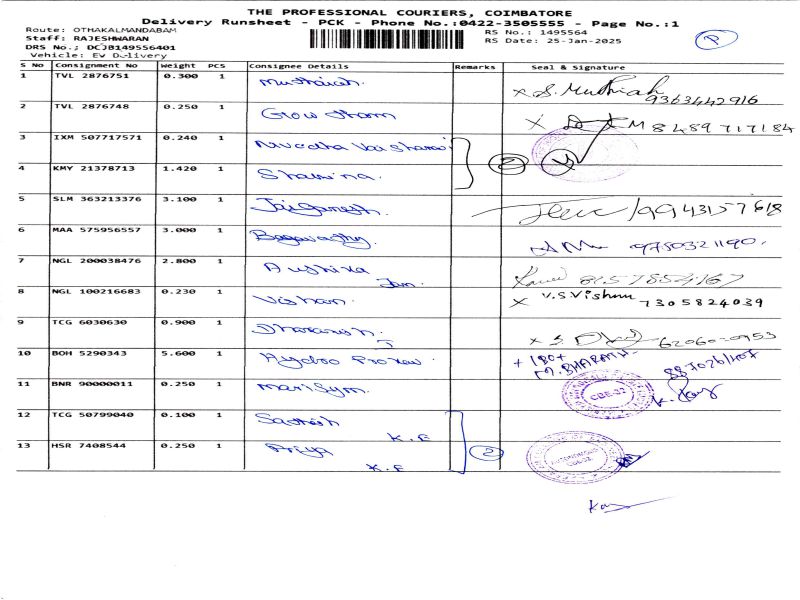 THE PROFESSIONAL COURIERS, COIMBATORE
Delivery Runsheet - PCK - Phone No.:0422-3505555 - Page No.:1
Route: OTHAKALMANDABAM
Staff: RAJESHWARAN
DRS No.; DCJB149556401
Vehicle: EV Delivery
RS No.: 1495564
RS Date: 25-Jan-2025
P
S No Consignment No Weight PCS Consignee Details Remarks Seal & Signature
1 TVL 2876751 0.300 1 Muthaiah X S. Muthiah 9363442916
2 TVL 2876748 0.250 1 Gowtham X 8489717184
3 IXM 507717571 0.240 1 Nivedha Vaishanavi
4 KMY 21378713 1.420 1 Sharmina. 2
5 SLM 363213376 3.100 1 Jaiganesh. /9943157618
6 MAA 575956557 3.000 1 9780321190.
7 NGL 200038476 2.800 1 8157854167
8 NGL 100216683 0.230 1 Vishnu. X V.S Vishnu 7305824039
9 TCG 6030630 0.900 1 X S.
10 BOH 5290343 5.600 1 M. BHARATH
11 BNR 90000011 0.250 1 Mari Sym. CBE-32
12 TCG 50799040 0.100 1 Sathish K.F
13 HSR 7408544 0.250 1 Priya K.F 2